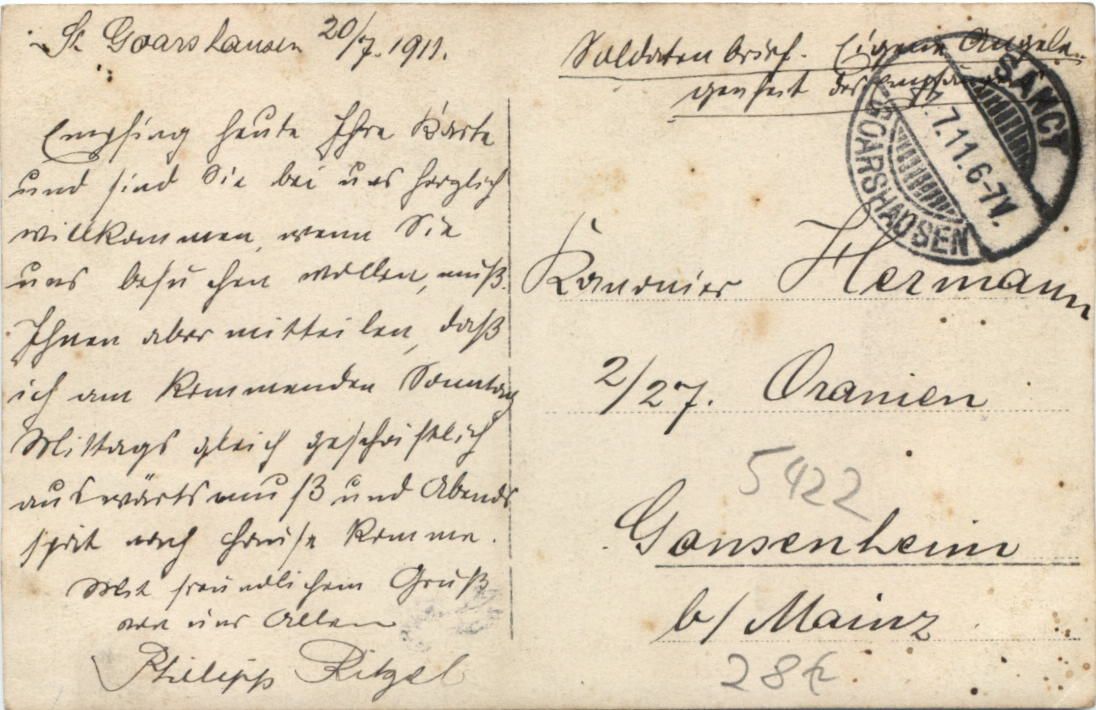 St. Goarshausen 20/7. 1911.
Empfing heute Ihre Karte
und sind Sie bei uns herzlich
willkommen, wenn Sie
uns besuchen wollen, muß
Ihnen aber mitteilen, daß
ich am kommenden Sonntag
Mittags gleich geschäftlich
auswärts muß und Abends
spät nach Hause komme.
Mit freundlichem Gruß
von uns Allen
Philipp Ritzel
Soldatenbrief. Eigene Angele-
genheit des Empfängers
SANCT
7.11.6-7N.
GOARSHAUSEN
Kanonier Hermann
2/27. Oranien
5422
Gonsenheim
b/ Mainz
28